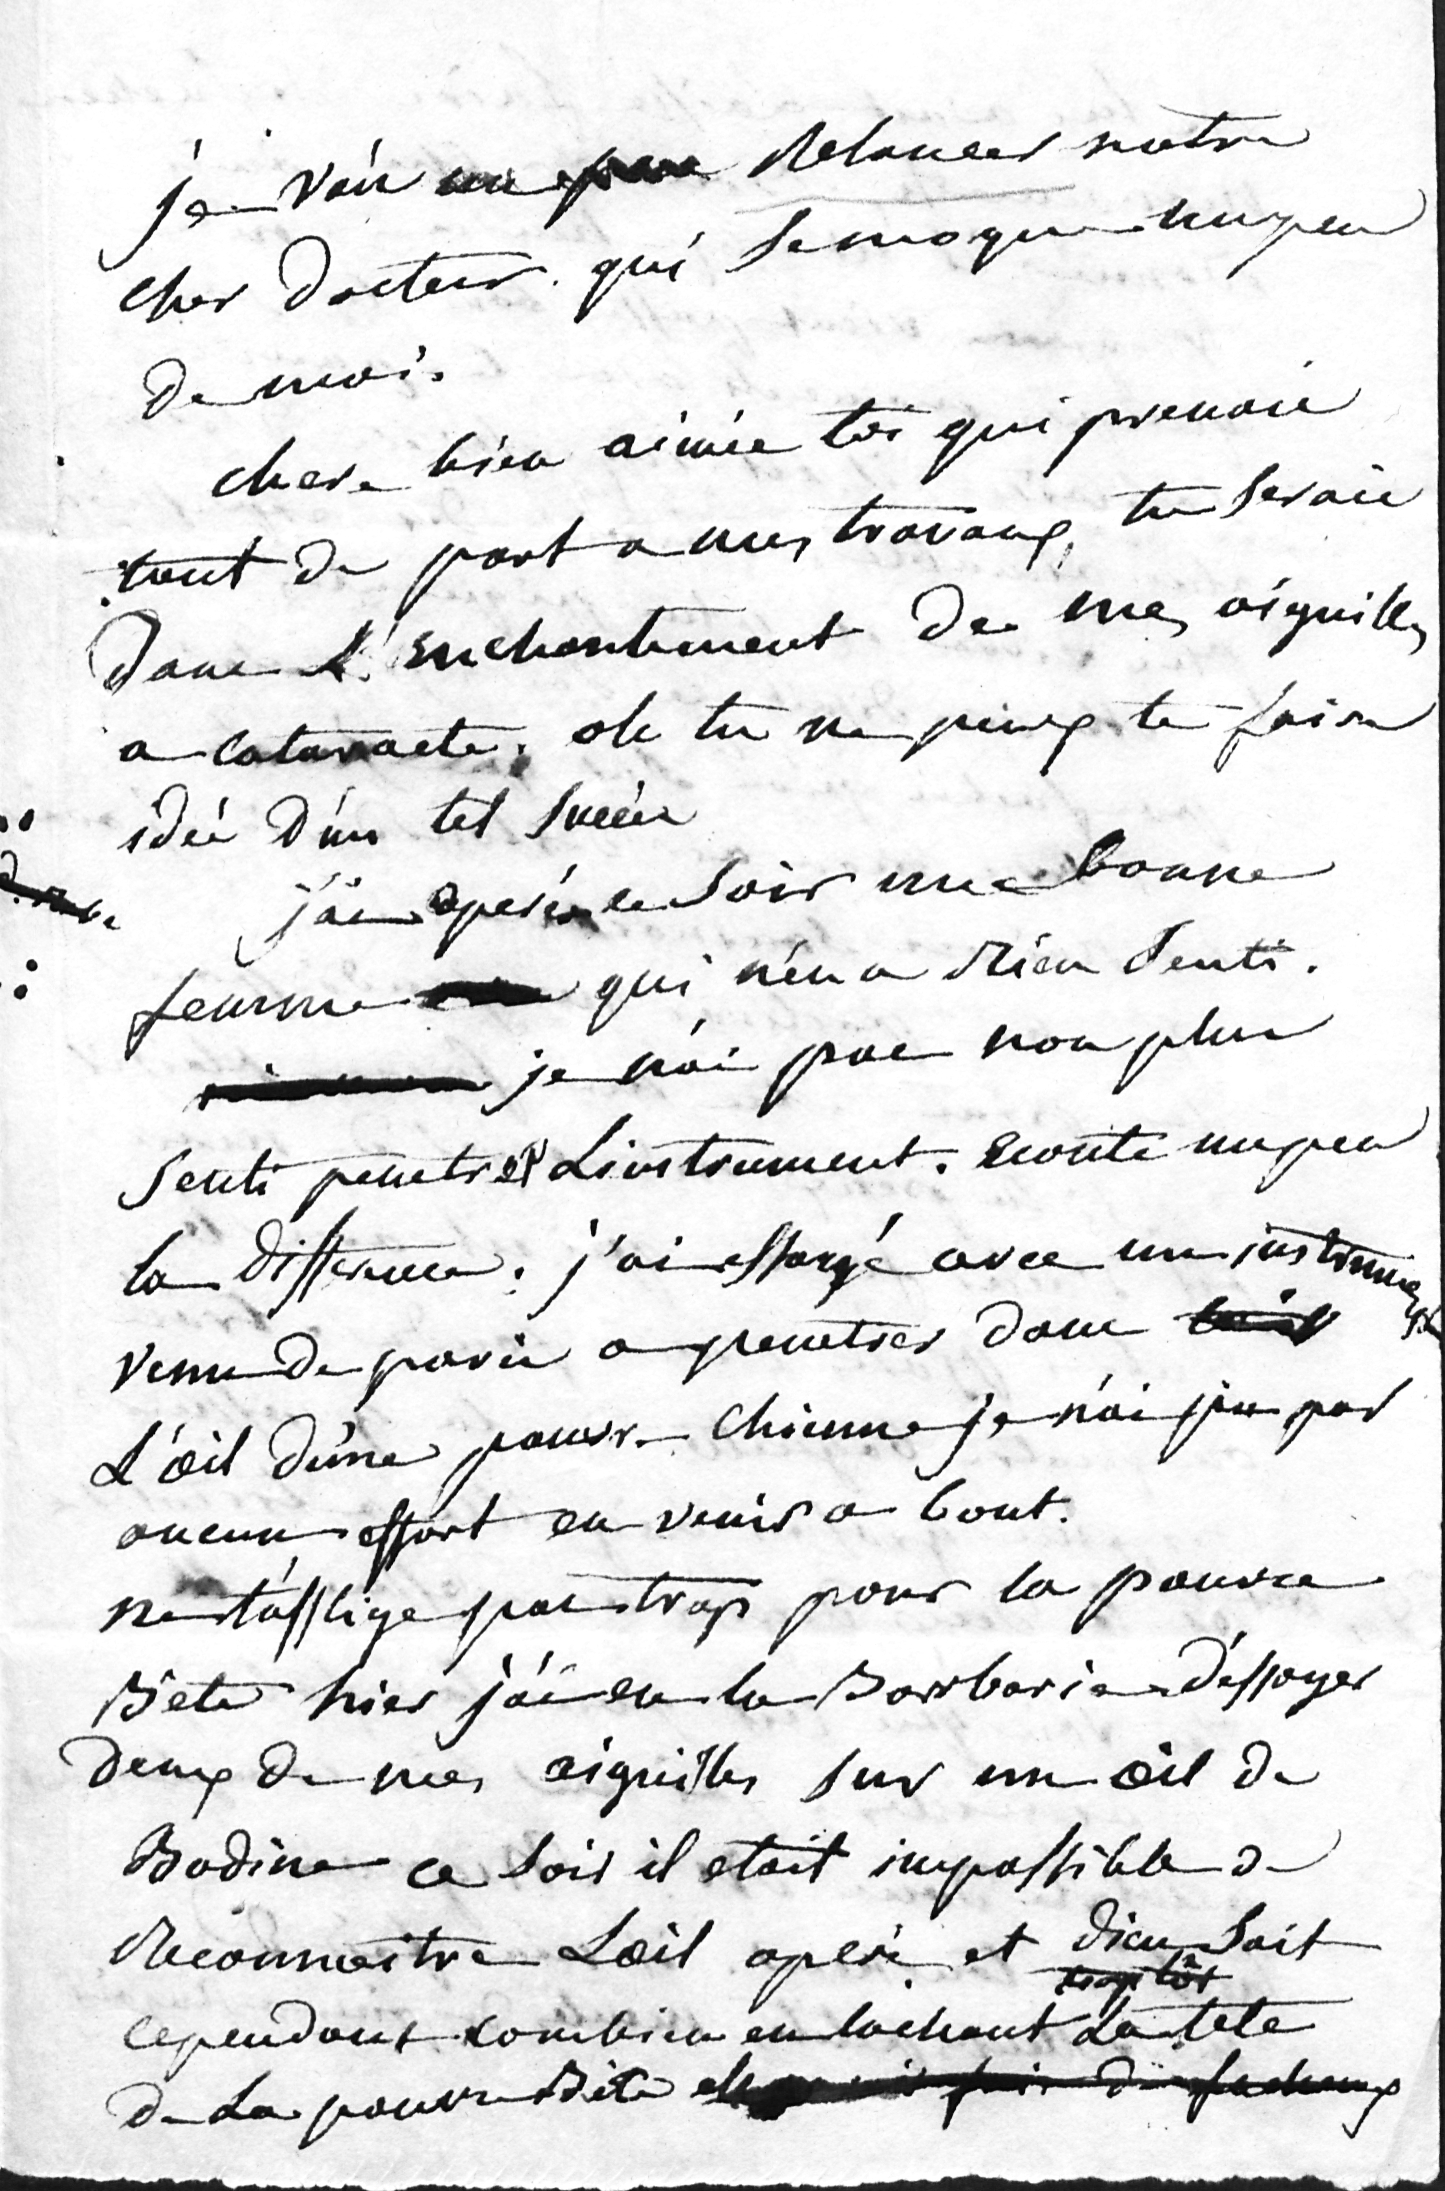 je vais un peu Relancer notre
cher Docteur. qui se moque un peu
de moi.
chere bien aimée toi qui prenais
tant de part a mes travaux, tu serais
Dans L'enchantement de mes aiguilles
a cataracte. oh tu ne peux te faire
idée D'un tel succès
j'ai operé ce soir une bonne
femme qui n'en a Rien Senti.
je n'ai pas non plus
Senti penetrer L'instrument. Ecoute un peu
la Difference. j'ai essayé avec un instrument
venu de paris a penetrer dans
L'œil d'une pauvre Chienne je n'ai pu par
aucun effort en venir a bout.
ne t'afflige pas trop pour la pauvre
Bete hier j'ai eu la Barbarie D'essayer
Deux de mes aiguilles sur un œil de
Bodine ce soir il etait impossible de
Reconnaitre L'œil operé et Dieu Sait
trop tôt
cependant combien en lachant La tete
de La pauvre Bête